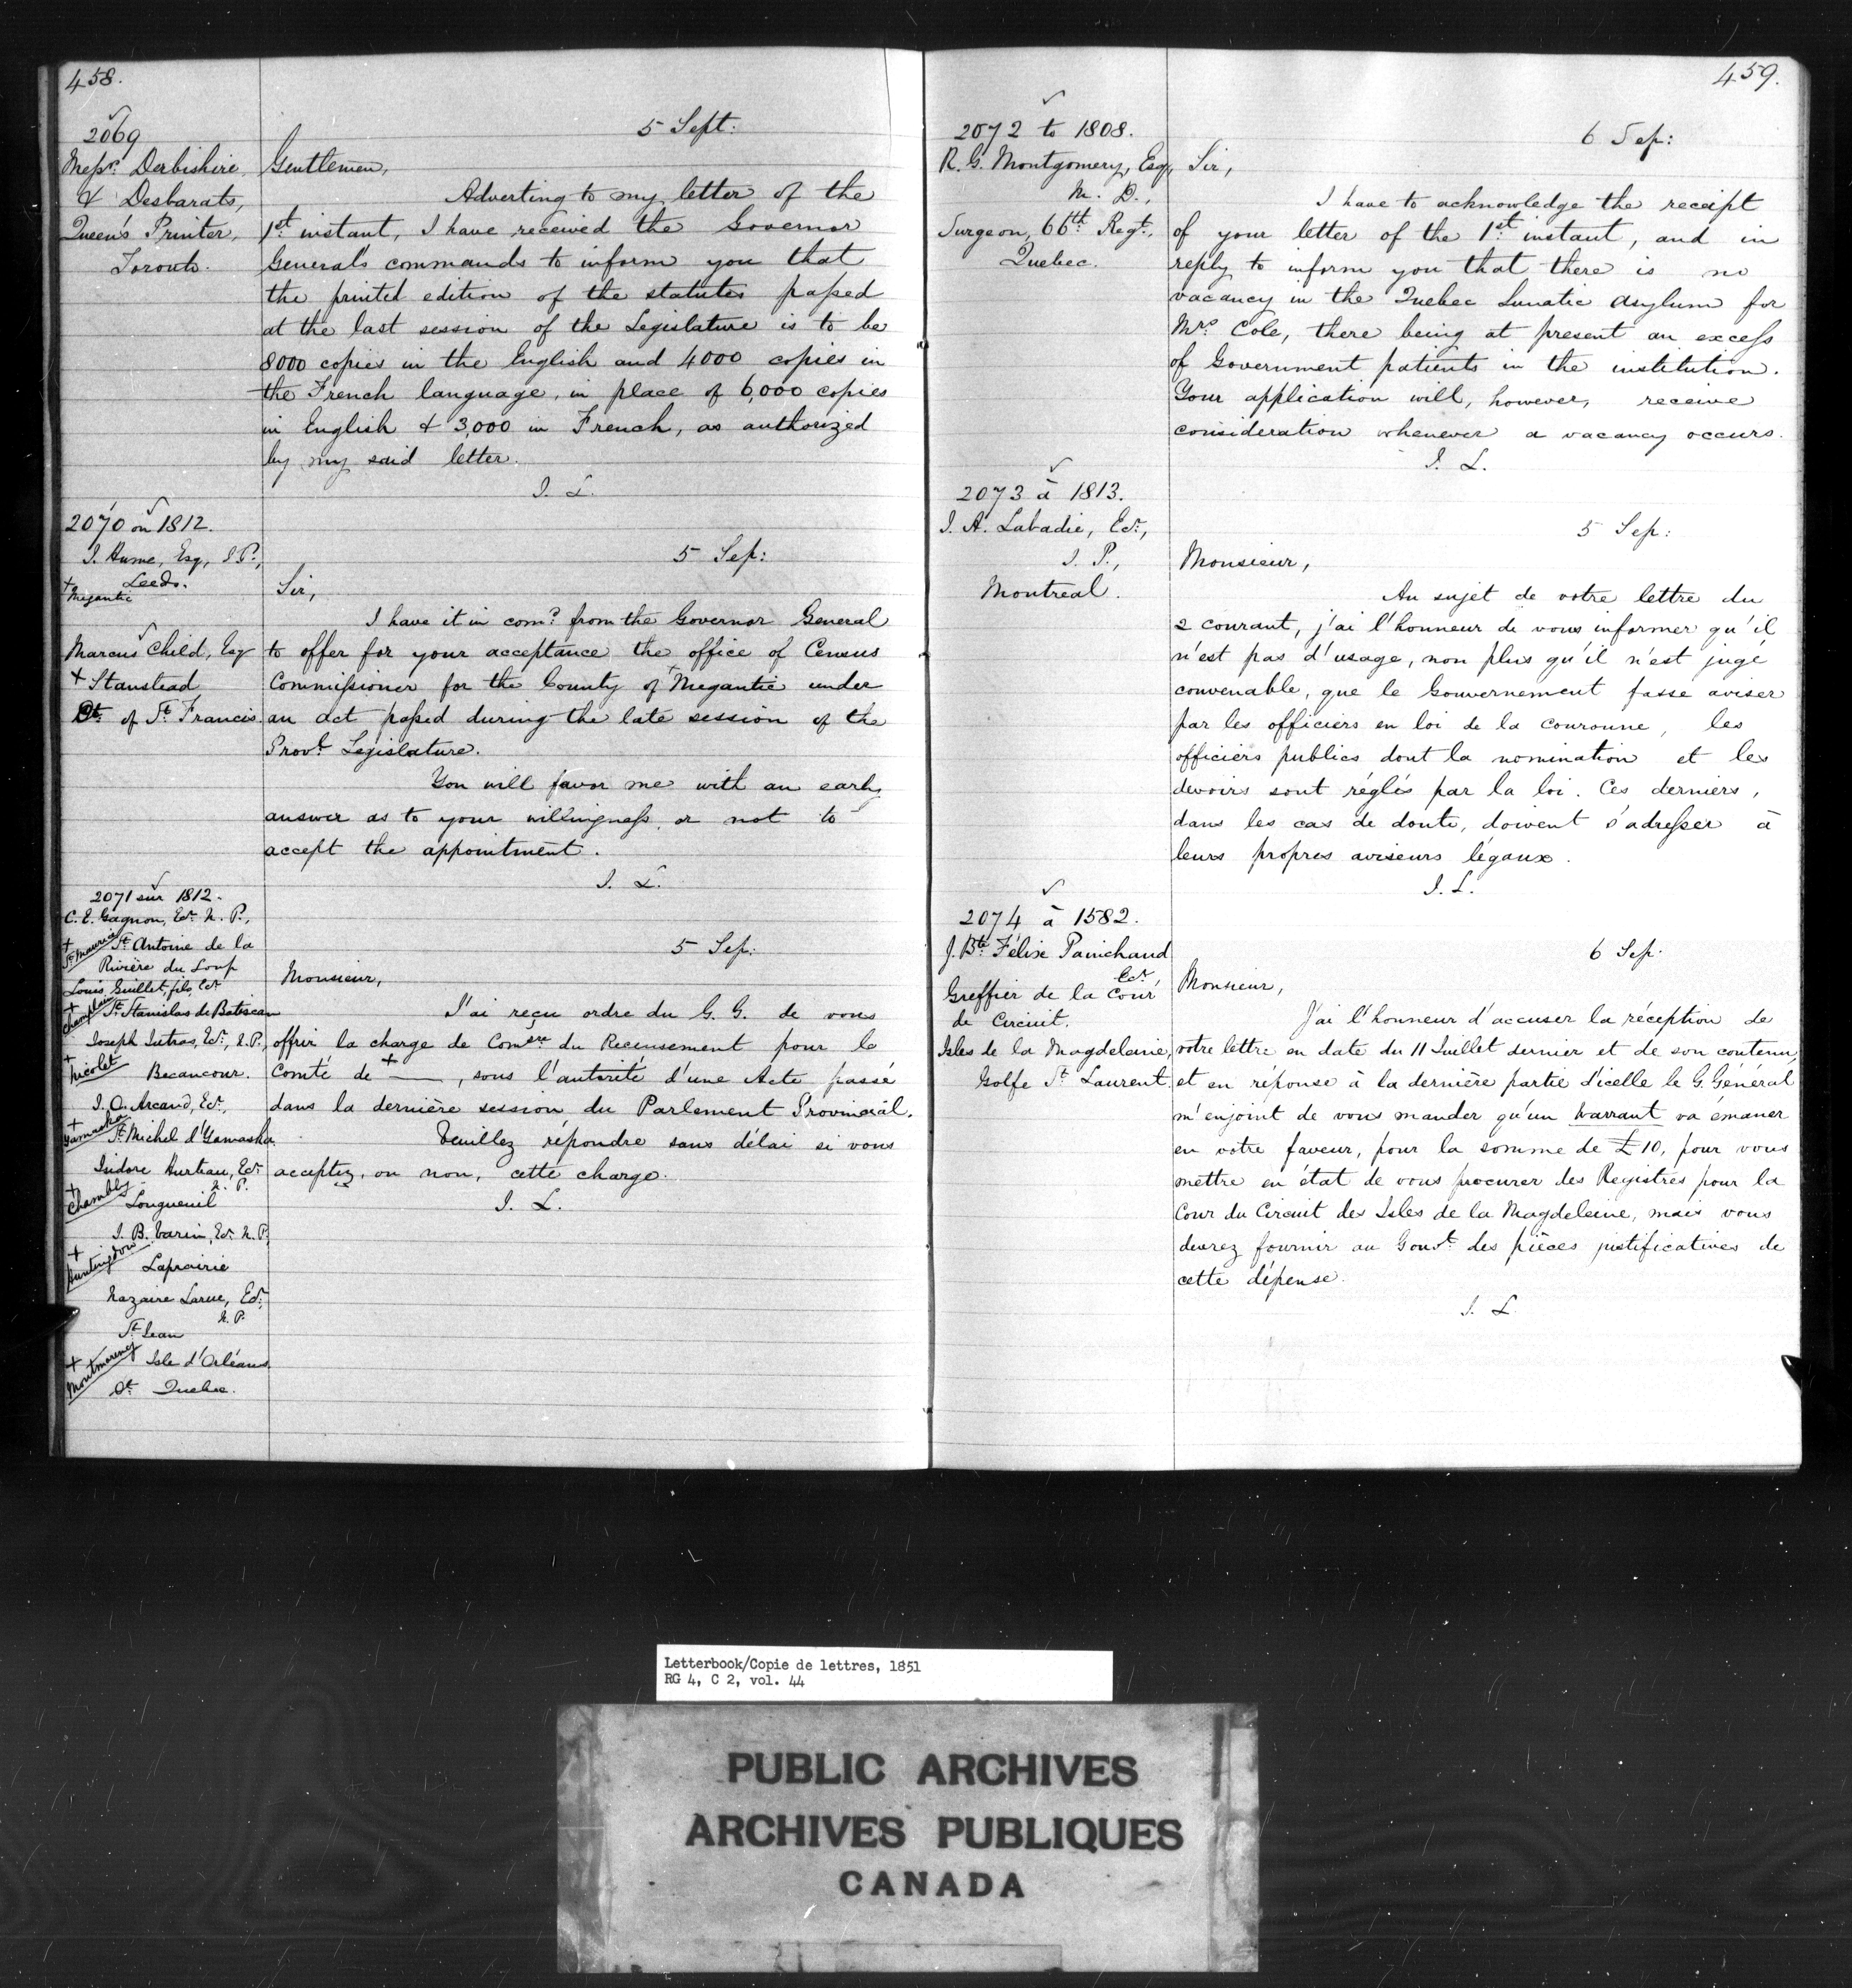 458.
2069
Messrs. Derbishire,
& Desbarats,
Queen's Printer,
Toronto.
5 Sept:
Gentlemen,
Adverting to my letter of the
1st. instant, I have received the Governor
General's commands to inform you that
the printed edition of the statutes passed
at the last session of the Legislature is to be
8000 copies in the English and 4000 copies in
the French language, in place of 6,000 copies
in English & 3,000 in French, as authorized
by my said letter.
J. L.
2070 on 1812.
J. Hume, Esq, J.P.,
Leeds.
+ Megantic
Marcus Child, Esq
+ Stanstead
Dt. of St. Francis.
5 Sep:
Sir,
I have it in comd. from the Governor General
to offer for your acceptance the office of Census
Commissioner for the County of + Megantic under
an Act passed during the late session of the
Provl. Legislature.
You will favor me with an early
answer as to your willingness or not to
accept the appointment.
J. L.
2071 sur 1812.
C. E. Gagnon, Ecr. N. P.,
+ St. Maurice
St. Antoine de la
Rivière du Loup
Louis Guillet, fils, Ecr
+ Champlain
St. Stanislas de Batiscan
Joseph Lutras, Ecr., J.P.,
+ Nicolet
Becancour.
J. O. Arcand, Ecr.,
+ Yamaska
St. Michel d'Yamaska
Isidore Hurteau, Ecr
N. P.
+ Chambly
Longueuil
J. B. Varin, Ecr. N. P.
+ Huntingdon
Laprairie
Nazaire Larue, Ecr.,
N. P.
St. Jean
+ Montmorency
Isle d'Orléans.
Dt. Quebec.
5 Sep:
Monsieur,
J'ai reçu ordre du G. G. de vous
offrir la charge de Comsre du Recensement pour le
Comté de + —, sous l'autorité d'une Acte passé
dans la dernière session du Parlement Provincial.
Veuillez répondre sans délai si vous
acceptez, ou non, cette charge.
J. L.
459.
2072 to 1808.
R. G. Montgomery, Esq,
M. D.,
Surgeon, 66th Regt.,
Quebec.
6 Sep:
Sir,
I have to acknowledge the receipt
of your letter of the 1st. instant, and in
reply to inform you that there is no
vacancy in the Quebec Lunatic Asylum for
Mrs. Cole, there being at present an excess
of Government patients in the institution.
Your application will, however, receive
consideration whenever a vacancy occurs.
J. L.
2073 à 1813.
J. A. Labadie, Ecr.,
J. P.,
Montreal.
5 Sep:
Monsieur,
Au sujet de votre lettre du
2 courant, j'ai l'honneur de vous informer qu'il
n'est pas d'usage, non plus qu'il n'est jugé
convenable, que le Gouvernement fasse aviser
par les officiers en loi de la couronne, les
officiers publics dont la nomination et les
devoirs sont réglés par la loi. Ces derniers,
dans les cas de doute, doivent s'adresser à
leurs propres aviseurs légaux.
J. L.
2074 à 1582.
J. Bte. Félix Painchaud
Ecr.
Greffier de la Cour
de Circuit.
Isles de la Magdeleine,
Golfe St. Laurent.
6 Sep.
Monsieur,
J'ai l'honneur d'accuser la réception de
votre lettre en date du 11 Juillet dernier et de son contenu,
et en réponse à la dernière partie d'icelle le G. Général
m'enjoint de vous mander qu'un Warrant va émaner
en votre faveur, pour la somme de £10, pour vous
mettre en état de vous procurer des Registres pour la
Cour du Circuit des Isles de la Magdeleine, mais vous
devrez fournir au Gouvt. des pièces justificatives de
cette dépense.
J. L.
Letterbook/Copie de lettres, 1851
RG 4, C 2, vol. 44
PUBLIC ARCHIVES
ARCHIVES PUBLIQUES
CANADA